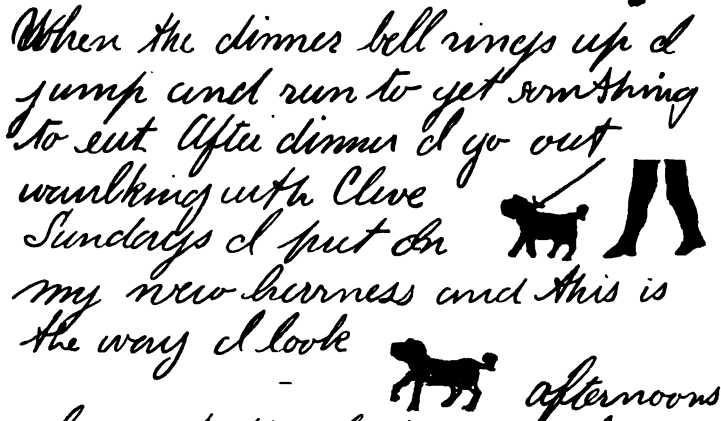 When the dinner bell rings up I
jump and run to get somthing
to eat After dinner I go out
waulking with Clive
Sundays I put on
my new harness and this is
the way I look
afternoons